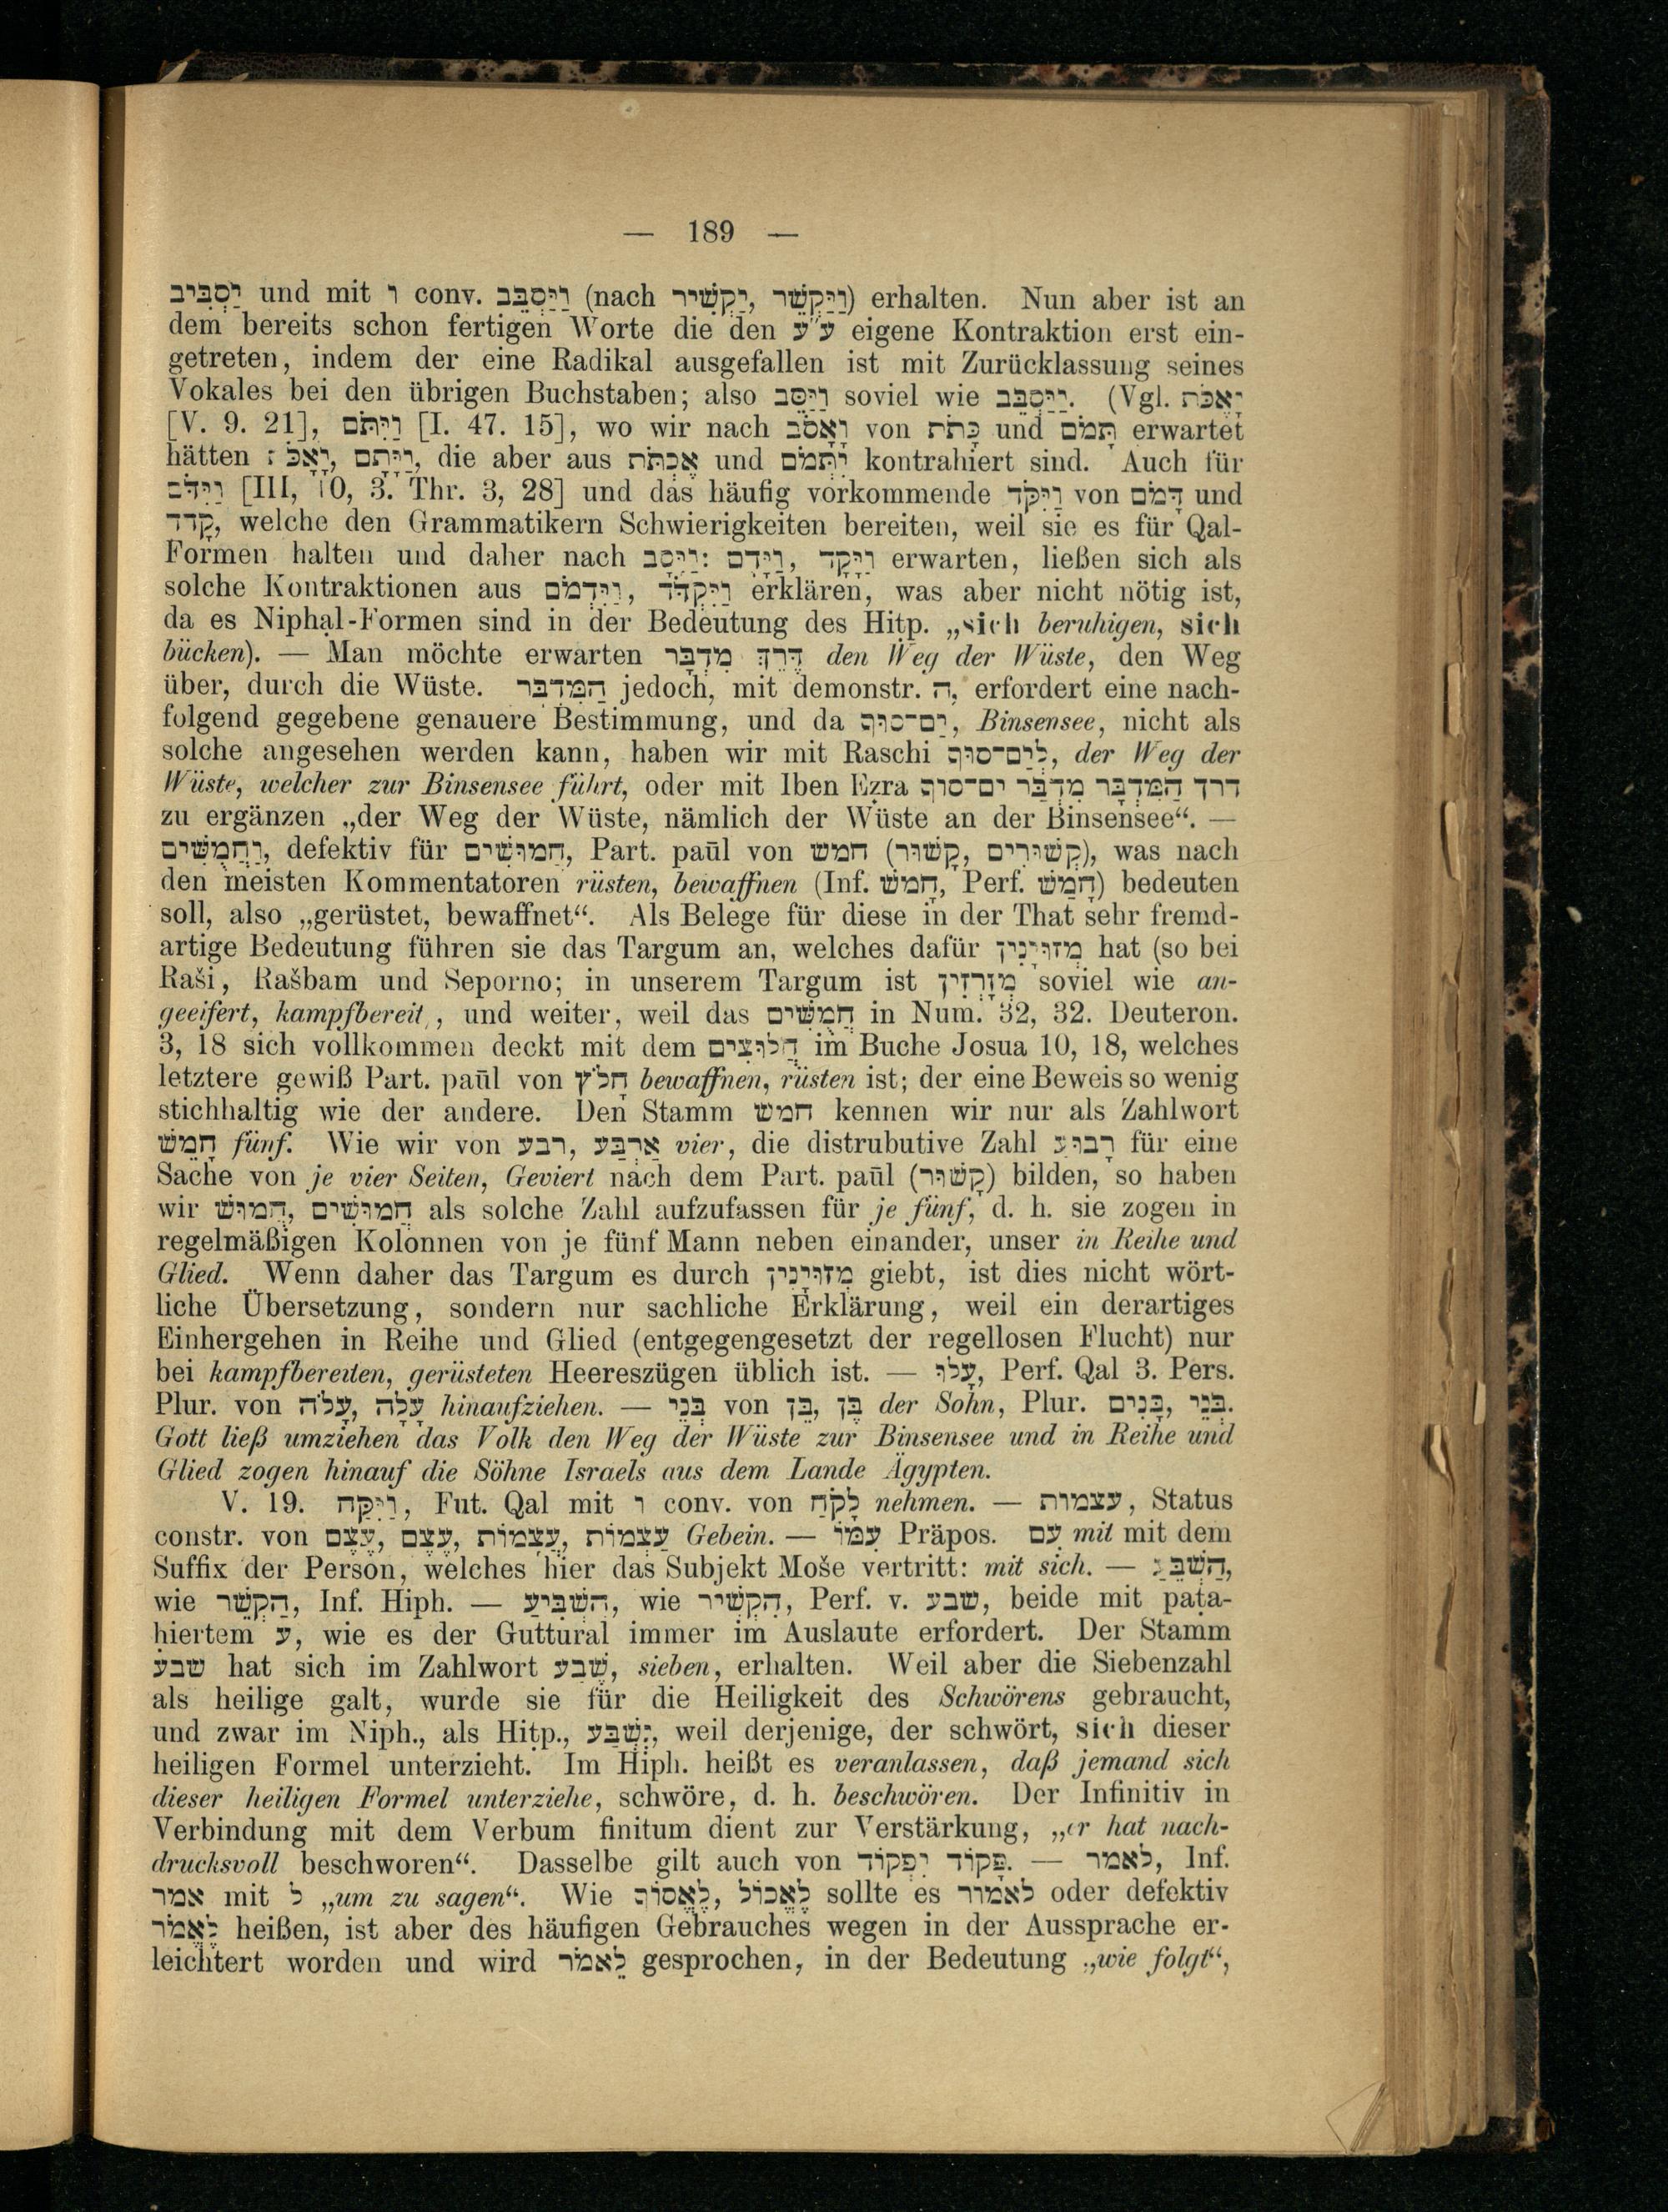 — 189 —
יַסְבִּיב und mit ו conv. וַיַּסְבֵּב (nach יַקְשִׁיר, וַיַּקְשֵׁר) erhalten. Nun aber ist an
dem bereits schon fertigen Worte die den ע״ע eigene Kontraktion erst ein-
getreten, indem der eine Radikal ausgefallen ist mit Zurücklassung seines
Vokales bei den übrigen Buchstaben; also וַיַּסֵּב soviel wie וַיַּסְבֵּב. (Vgl. וָאֶכֹּת
[V. 9. 21], וַיִּתֹּם [I. 47. 15], wo wir nach וָאָסֹב von כָּתֹת und תָּמֹם erwartet
hätten וָאָכֹּ, וַיָּתָם, die aber aus אֶכְתֹּת und יִתְמֹם kontrahiert sind. Auch für
וַיִּדֹּם [III, 10, 3. Thr. 3, 28] und das häufig vorkommende וַיִּקֹּד von דָּמֹם und
קָדד, welche den Grammatikern Schwierigkeiten bereiten, weil sie es für Qal-
Formen halten und daher nach וַיָּסָב: וַיָּדָם, וַיָּקָד erwarten, ließen sich als
solche Kontraktionen aus וַיִּדְמֹם, וַיִּקְדֹּד erklären, was aber nicht nötig ist,
da es Niphal-Formen sind in der Bedeutung des Hiṭp. „sich beruhigen, sich
bücken). — Man möchte erwarten דֶּרֶךְ מִדְבָּר den Weg der Wüste, den Weg
über, durch die Wüste. הַמִּדְבָּר jedoch, mit demonstr. ה, erfordert eine nach-
folgend gegebene genauere Bestimmung, und da יַם־סוּף, Binsensee, nicht als
solche angesehen werden kann, haben wir mit Raschi לְיַם־סוּף, der Weg der
Wüste, welcher zur Binsensee führt, oder mit Iben Ezra דרך הַמִּדְבָּר מִדְבַּר ים־סוף
zu ergänzen „der Weg der Wüste, nämlich der Wüste an der Binsensee“. —
וַחֲמֻשִׁים, defektiv für חֲמוּשִׁים, Part. paūl von חמש (קָשׁוּר, קְשׁוּרִים), was nach
den meisten Kommentatoren rüsten, bewaffnen (Inf. חָמֹשׁ, Perf. חָמַשׁ) bedeuten
soll, also „gerüstet, bewaffnet“. Als Belege für diese in der That sehr fremd-
artige Bedeutung führen sie das Targum an, welches dafür מְזוּיָּנִין hat (so bei
Raši, Rašbam und Seporno; in unserem Targum ist מְזָרְזִין soviel wie an-
geeifert, kampfbereit,, und weiter, weil das חֲמֻשִׁים in Num. 32, 32. Deuteron.
3, 18 sich vollkommen deckt mit dem חֲלוּצִים im Buche Josua 10, 18, welches
letztere gewiß Part. paūl von חָלֹץ bewaffnen, rüsten ist; der eine Beweis so wenig
stichhaltig wie der andere. Den Stamm חמש kennen wir nur als Zahlwort
חָמֵשׁ fünf. Wie wir von רבע, אַרְבַּע vier, die distrubutive Zahl רָבוּעַ für eine
Sache von je vier Seiten, Geviert nach dem Part. paūl (קָשׁוּר) bilden, so haben
wir חֲמוּשׁ, חֲמוּשִׁים als solche Zahl aufzufassen für je fünf, d. h. sie zogen in
regelmäßigen Kolonnen von je fünf Mann neben einander, unser in Reihe und
Glied. Wenn daher das Targum es durch מְזוּיָּנִין giebt, ist dies nicht wört-
liche Übersetzung, sondern nur sachliche Erklärung, weil ein derartiges
Einhergehen in Reihe und Glied (entgegengesetzt der regellosen Flucht) nur
bei kampfbereiten, gerüsteten Heereszügen üblich ist. — עָלוּ, Perf. Qal 3. Pers.
Plur. von עָלֹה, עָלָה hinaufziehen. — בְּנֵי von בֵּן, בֶּן der Sohn, Plur. בָּנִים, בְּנֵי.
Gott ließ umziehen das Volk den Weg der Wüste zur Binsensee und in Reihe und
Glied zogen hinauf die Söhne Israels aus dem Lande Ägypten.
V. 19. וַיִּקַּח, Fut. Qal mit ו conv. von לָקֹחַ nehmen. — עצמות, Status
constr. von עֶצֶם, עֶצֶם, עֲצָמוֹת, עַצְמוֹת Gebein. — עִמּוֹ Präpos. עִם mit mit dem
Suffix der Person, welches hier das Subjekt Moše vertritt: mit sich. — הַשְׁבֵּעַ,
wie הַקְשֵׁר, Inf. Hiph. — הִשְׁבִּיעַ, wie הִקְשִׁיר, Perf. v. שבע, beide mit paṭa-
ḥiertem ע, wie es der Guttural immer im Auslaute erfordert. Der Stamm
שבע hat sich im Zahlwort שֶׁבַע, sieben, erhalten. Weil aber die Siebenzahl
als heilige galt, wurde sie für die Heiligkeit des Schwörens gebraucht,
und zwar im Niph., als Hiṭp., נִשְׁבַּע, weil derjenige, der schwört, sich dieser
heiligen Formel unterzieht. Im Hiph. heißt es veranlassen, daß jemand sich
dieser heiligen Formel unterziehe, schwöre, d. h. beschwören. Der Infinitiv in
Verbindung mit dem Verbum finitum dient zur Verstärkung, „er hat nach-
drucksvoll beschworen“. Dasselbe gilt auch von פָּקוֹד יִפְקוֹד. — לאמר, Inf.
אמר mit ל „um zu sagen“. Wie לֶאֱסוֹף, לֶאֱכוֹל sollte es לאמור oder defektiv
לֶאֱמֹר heißen, ist aber des häufigen Gebrauches wegen in der Aussprache er-
leichtert worden und wird לֵאמֹר gesprochen, in der Bedeutung „wie folgt“,